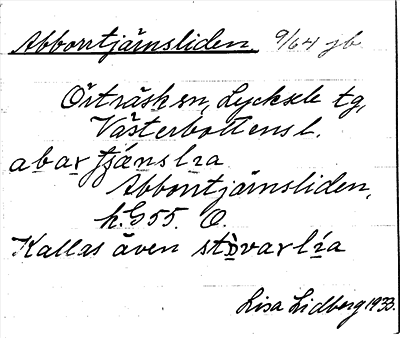 Abborrtjärnsliden 9/64 jb.
Örträsk sn, Lycksele tg,
Västerbottens l.
abar tjänslia
Abborrtjärnsliden,
k. G55. O.
Kallas även stòvarlía
Lisa Lidberg 1933.